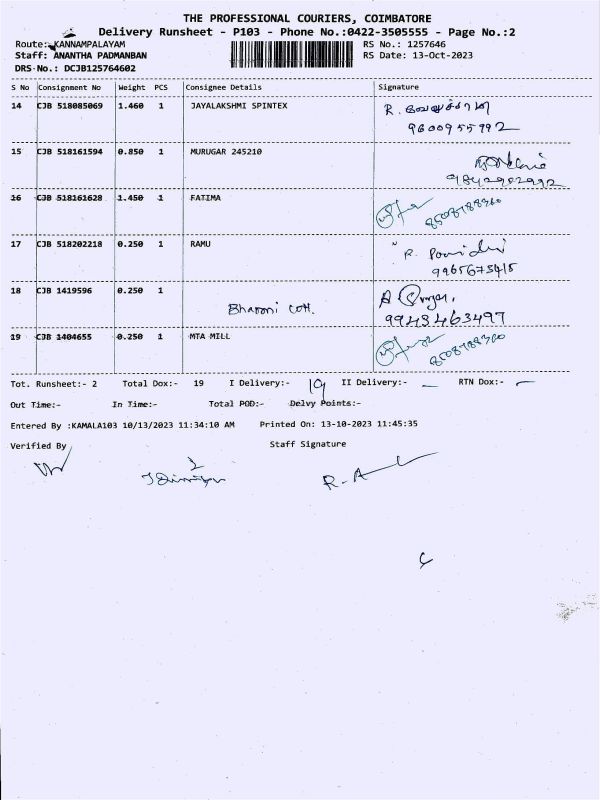 THE PROFESSIONAL COURIERS, COIMBATORE
Delivery Runsheet - P103 - Phone No.:0422-3505555 - Page No.:2
Route: KANNAMPALAYAM RS No.: 1257646
Staff: ANANTHA PADMANBAN RS Date: 13-Oct-2023
DRS No.: DCJB125764602
S No Consignment No Weight PCS Consignee Details Signature
14 CJB 518085069 1.460 1 JAYALAKSHMI SPINTEX R.
9600955992
15 CJB 518161594 0.850 1 MURUGAR 245210
16 CJB 518161628 1.450 1 FATIMA
17 CJB 518202218 0.250 1 RAMU R.
9965675415
18 CJB 1419596 0.250 1
9943463497
19 CJB 1404655 0.250 1 MTA MILL
Tot. Runsheet:- 2 Total Dox:- 19 I Delivery:- 19 II Delivery:- — RTN Dox:- —
Out Time:- In Time:- Total POD:- Delvy Points:-
Entered By :KAMALA103 10/13/2023 11:34:10 AM Printed On: 13-10-2023 11:45:35
Verified By Staff Signature